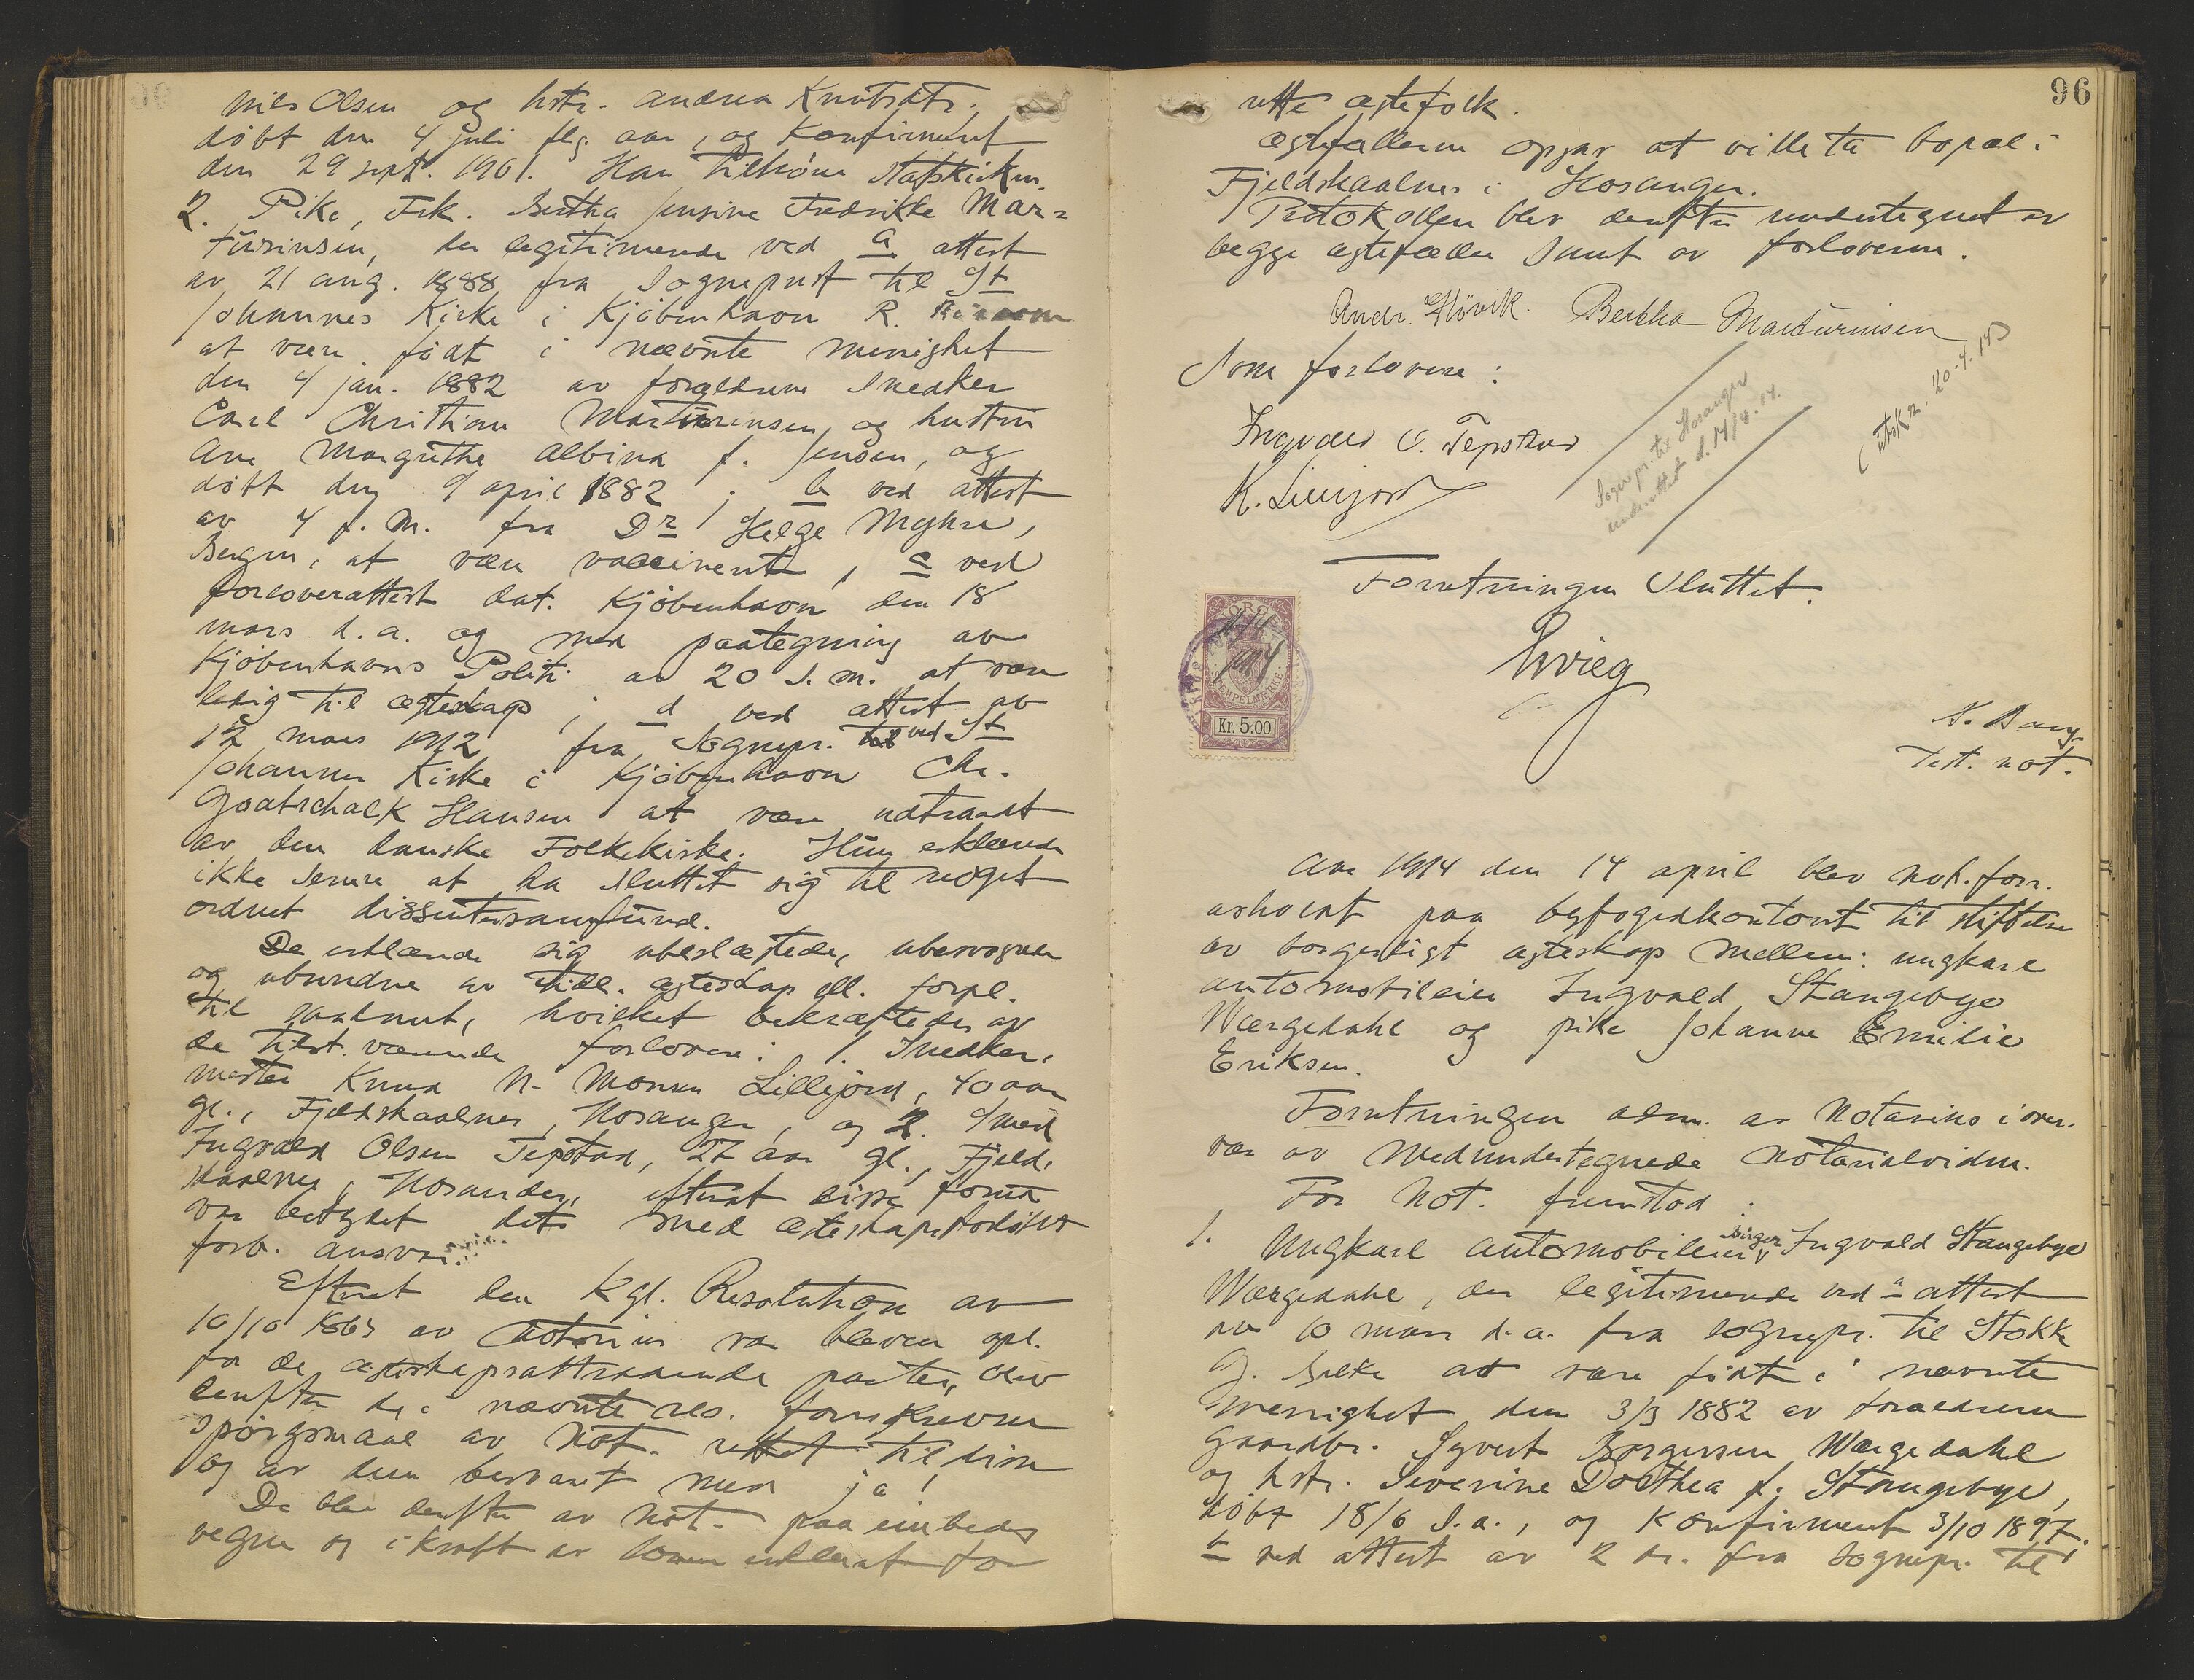 Nils Olsen og hstr. Andrea Knutsdtr.,
döbt den 4 juli flg. aar, og konfirmert
den 29 sept. 1901. Han tilhörer statskirken.
2. Pike, Frk. Bertha Jensine Fredrikke Mar=
turinsen, der legitimerede ved a attest
av 21 aug. 1888 fra Sogneprest til St
Johannes Kirke i Kjöbenhavn R.
at være födt i nævnte menighet
den 4 jan. 1882 av forældrene Snedker
Carl Christian Marturinsen og hustru
Ane Margrethe Albina f. Jensen, og
döbt den 9 april 1882; b ved attest
av 4 f. M. fra Dr Helge Myhre,
Bergen, at være vaccinert, c ved
forloverattest dat. Kjöbenhavn den 18
mars d.a. og med paategning av
Kjöbenhavns Politi av 20 s.m. at være
ledig til egteskap; d ved attest av
12 mars 1912 fra Sognepr. ved St
Johannes Kirke i Kjöbenhavn Chr.
Goatschalk Hansen at være udtraadt
av den danske Folkekirke. Hun erklærede
ikke senere at ha sluttet sig til noget
ordnet dissentersamfund.
De erklærede sig ubeslægtede, ubesvogrede
og ubundne av tidl. egteskap ell. forpl.
til saadant, hvilket bekræftedes av
de tilst. værende forlovere: 1. Snedker-
mester Knud N. Monsen Lillejord, 40 aar
gl., Fjeldskaalnes, Hosanger, og 2. Smed
Ingvald Olsen Tepstad, 27 aar gl., Fjeld-
skaalnes, Hosanger, efterat disse forut
var betydet det med egteskapsforlöftet
forb. ansvar.
Efterat den Kgl. Resolution av
10/10 1863 av Notarius var bleven opl.
for de egteskapsattraaende parter, blev
derefter de i nævnte res. foreskrevne
spörgsmaal av Not. rettet til disse
og av dem besvart med ja!
De blev derefter av Not. paa embeds
vegne og i kraft av loven erklæret for
96
rette egtefolk.
Egtefællerne opgav at ville ta bopæl i
Fjeldskaalnes i Hosanger.
Protokollen blev derefter undertegnet av
begge egtefæller samt av forloverne.
Andr. Hövik. Bertha Marturinsen
Som forlovere:
Ingvald O. Tepstad
K. Lillejord
Sognepr. til Hosanger
underrettet d. 14/4.14.
(utskr. 20-4.14)
Forretningen sluttet.
NORGE
STEMPELMERKE
Kr. 5.00
Grieg
K. Bang
Test. not.
Aar 1914 den 14 april blev not. forr.
avholdt paa byfogedkontoret til stiftelse
av borgerligt egteskap mellem: ungkarl
automobileier Ingvald Stangebye
Wærgedahl og pike Johanne Emilie
Eriksen.
Forretningen adm. av Notarius i over-
vær av medundertegnede notarialvidne.
For Not. fremstod:
1. Ungkarl automobileier Birger Ingvald Stangebye
Wærgedahl, der legitimerede ved a attest
av 10 mars d.a. fra sognepr. til Stokke
G. at være födt i nævnte
menighet den 3/3 1882 av forældrene
gaardbr. Syvert Borgersen Wærgedahl
og hstr. Severine Dorthea f. Stangebye,
döbt 18/6 s.a., og konfirmert 3/10 1897.
b ved attest av 2 ds. fra sognepr. til